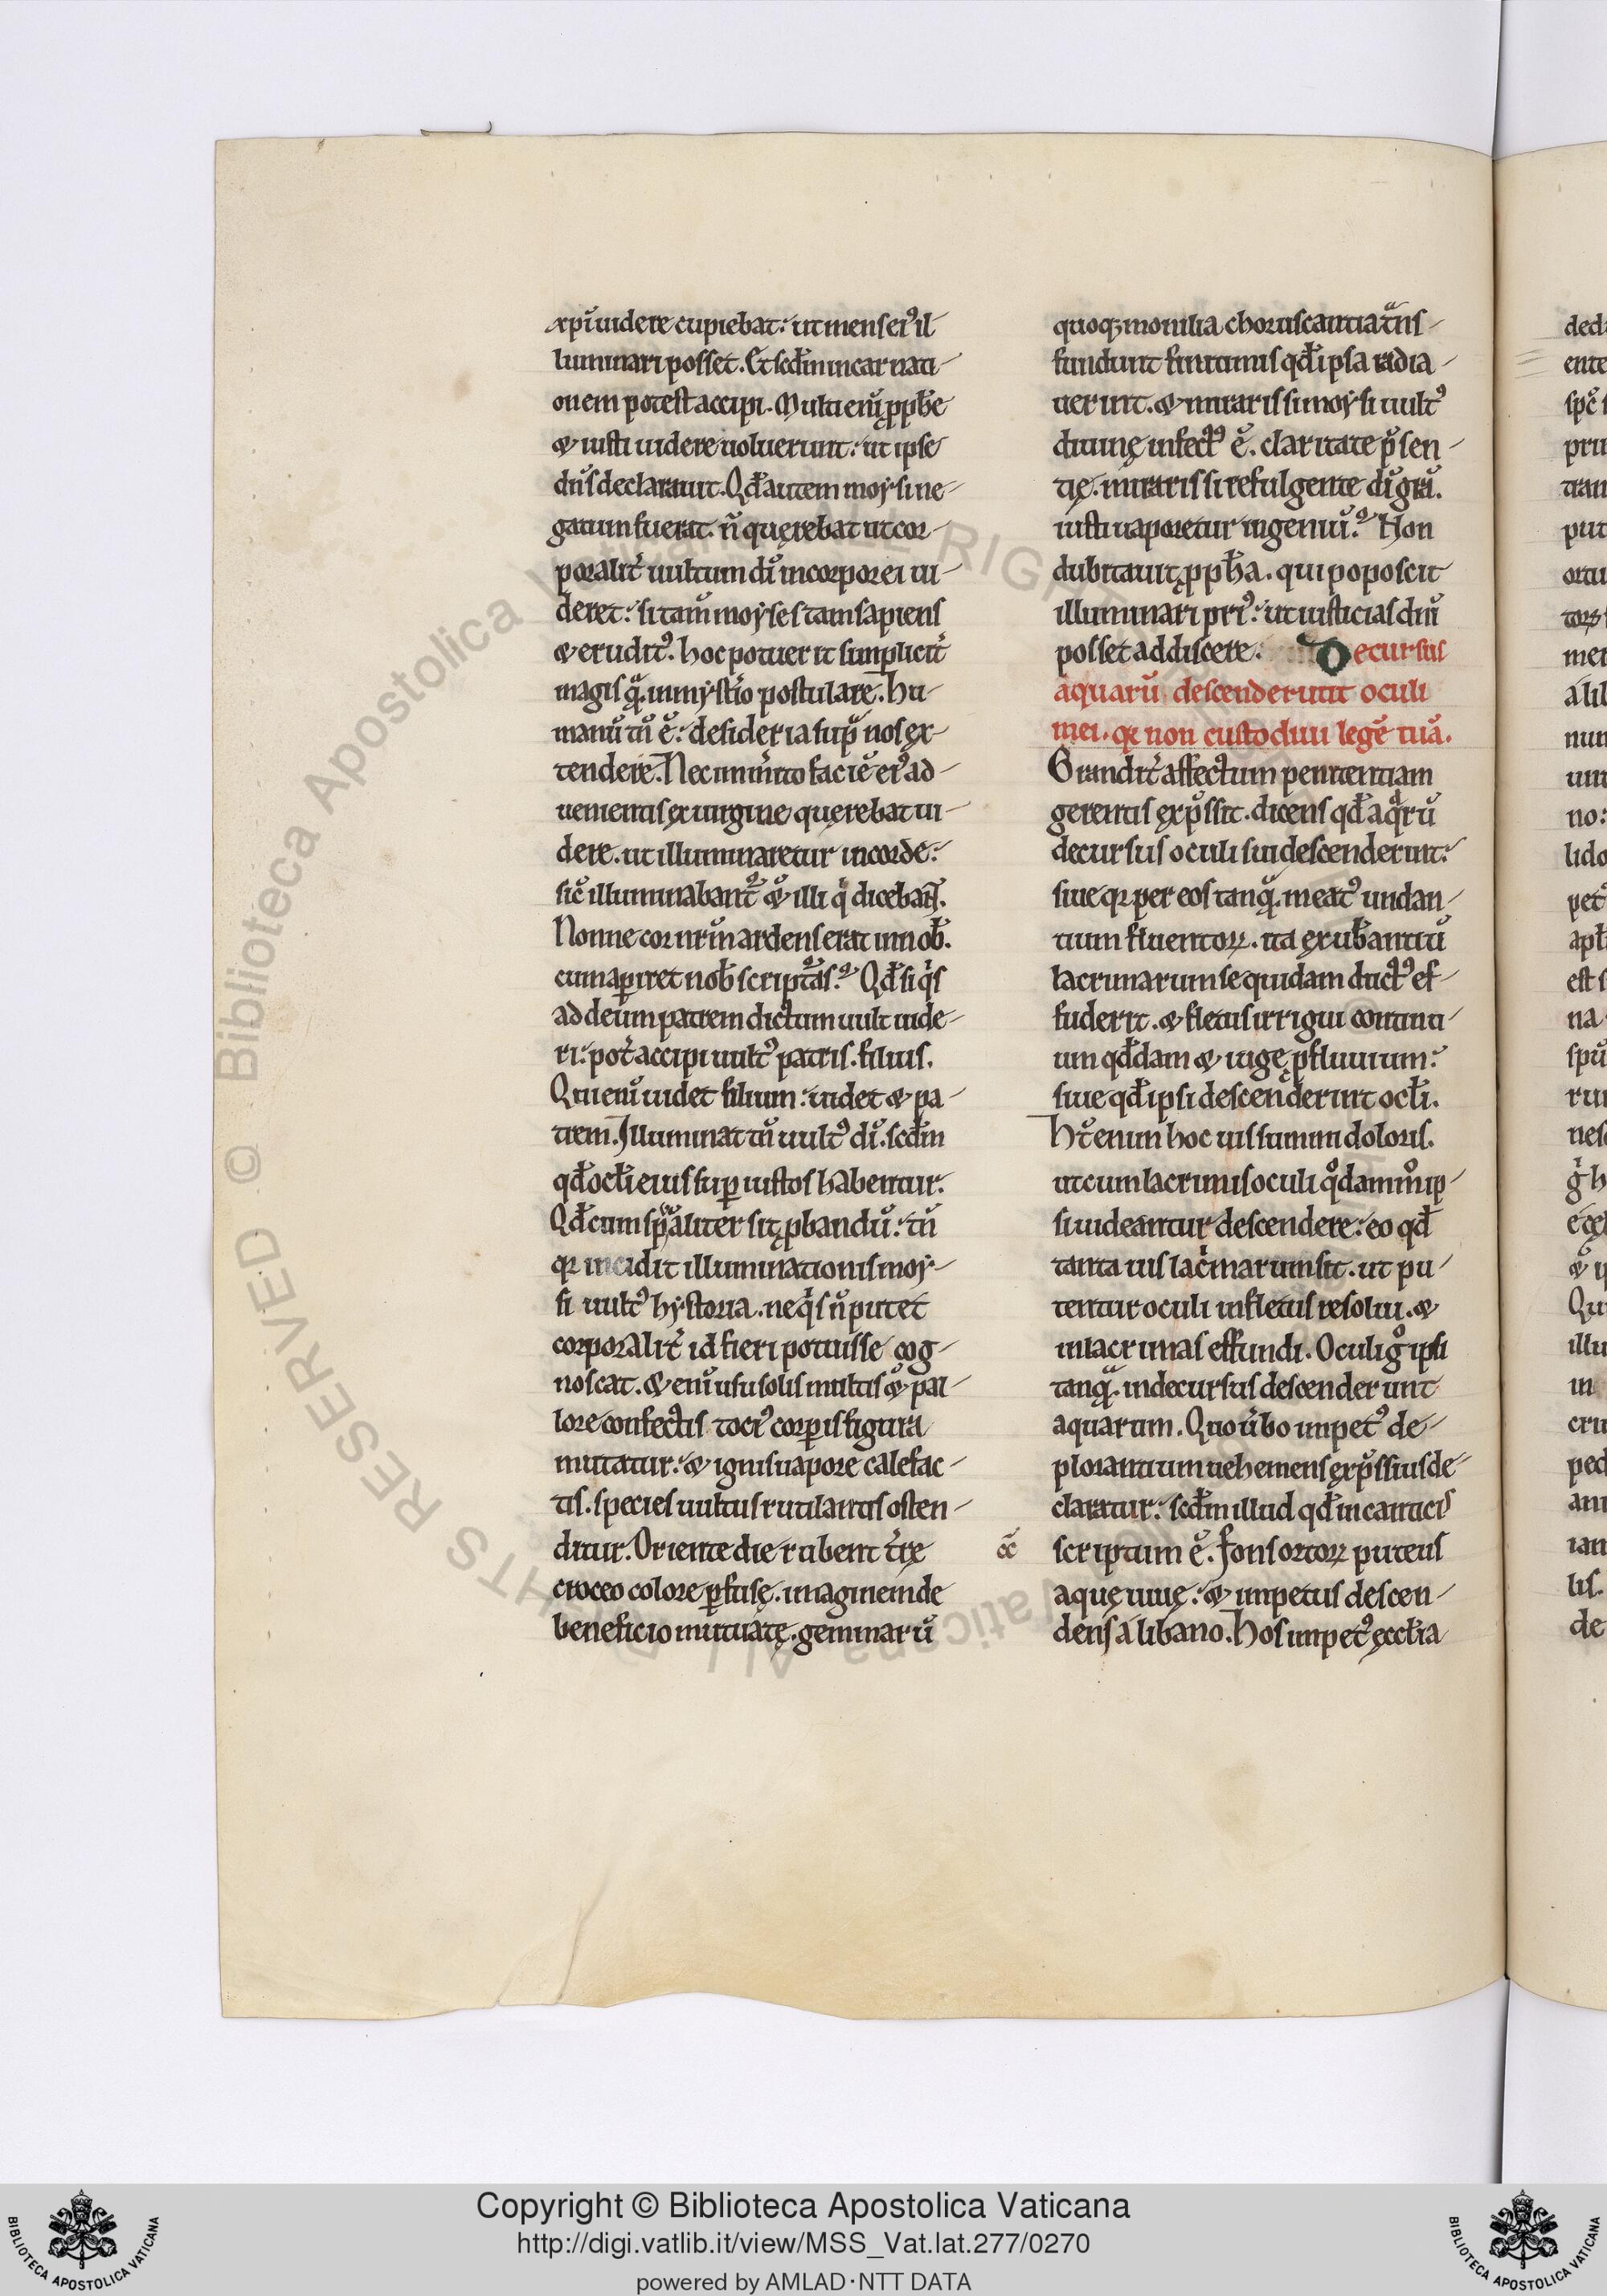 xp̄i uidere cupiebat: ut mens ei9 il-
luminari posset. Et scd̄m incarnati-
onem potest accipi. Multi eni̅ ꝓph̄e
& iusti uidere uoluerunt: ut ipse
dn̄s declarauit. Qd̄ autem moysi ne-
gatum fuerat. n̄ quęrebat ut cor-
poralit̄ uultum di̅ incorporei ui-
deret: si tam̄ moyses tam sapiens
& erudit9. hoc potuerit simplicit̄
magis q̄ꝫ in mysterio postulare. hu-
manū tn̄ ē: desideria sup̄ nos ex-
tendere. Nec inm̄ito faciē ei9 ad-
uenientis ex uirgine querebat ui-
dere. ut illuminaretur in corde:
sic̄ illuminabant̄ & illi qi dicebant̄.
Nonne cor nr̄m ardens erat in nob̄.
cum aꝑiret nob̄ scripturas? Qd̄ si qis
ad deum patrem dictum uult uide-
ri: pot̄ accipi uult9 patris. filius.
Qui eni̅ uidet filium: uidet & pa-
trem. Illuminat tn̄ uult9 di̅. scd̄m
qd̄ ocl̄i eius suꝑ iustos habentur.
Qd̄ cum sp̄ualiter sit ꝓbandū: tn̄
qꝛ incidit illuminationis moy-
si uult9 hystoria. ne qis n̄ putet
corporalit̄ id fieri potuisse cog-
noscat. & eni̅ usu solis multis & pal-
lore confectis toci9 corꝑis figura
mutatur: & ignis uapore calefac-
tis. species uultus rutilantis osten-
ditur. Oriente die rubent t̄rę
croceo colore ꝑfusę. imaginem de
beneficio mutuatę. gemmarū
quoqꝫ monilia choruscantia tn̄s-
fundunt finitimis qd̄ ipsa radia-
uerunt. & miraris si moysi uult9
diuinę infect9 ē. claritate p̄sen-
tię. miraris si refulgente di̅ gra̅.
iusti uaporetur ingeniū? Non
dubitauit ꝓph̄a. qui poposcit
illuminari pri9: ut iusticias dn̄i
posset addiscere. Decursus
aquarū descenderunt oculi
mei. qꝛ non custodiui legē tuā.
Grandit̄ affectum penitentiam
gerentis exp̄ssit. dicens qd̄ aqarū
decursus oculi sui descenderunt:
siue qꝛ per eos tanq̄ꝫ meat9 undan-
tium fluentoꝝ. ita exub̄antiū
lacrimarum se quidam duct9 ef-
fuderit. & fletus irrigui continu-
um qd̄dam & iugę ꝓfluuium:
siue qd̄ ipsi descenderint ocl̄i.
Ht̄ enim hoc uis summi doloris.
ut cum lacrimis oculi qodammo ip-
si uideantur descendere: eo qd̄
tanta uis lacimarum sit. ut pu-
tentur oculi in fletus resolui. &
in lacrimas effundi. Oculi go ipsi
tanq̄ꝫ in decursus descenderunt
aquarum. Quo ūbo impet9 de-
plorantium uehemens exp̄ssius de-
claratur: scd̄m illud qd̄ in canticis
scriptum ē. Fons ortoꝝ puteus
aquę uiuę: & impetus descen-
dens a libano. Hos impet9 ęccl̄ia
Copyright © Biblioteca Apostolica Vaticana
http://digi.vatlib.it/view/MSS_Vat.lat.277/0270
powered by AMLAD·NTT DATA